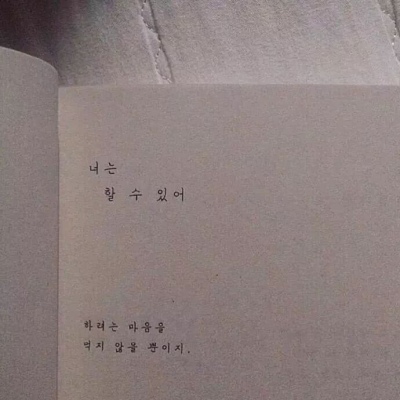 너는
할 수 있어
하려는 마음을
먹지 않볼 뿐이지.